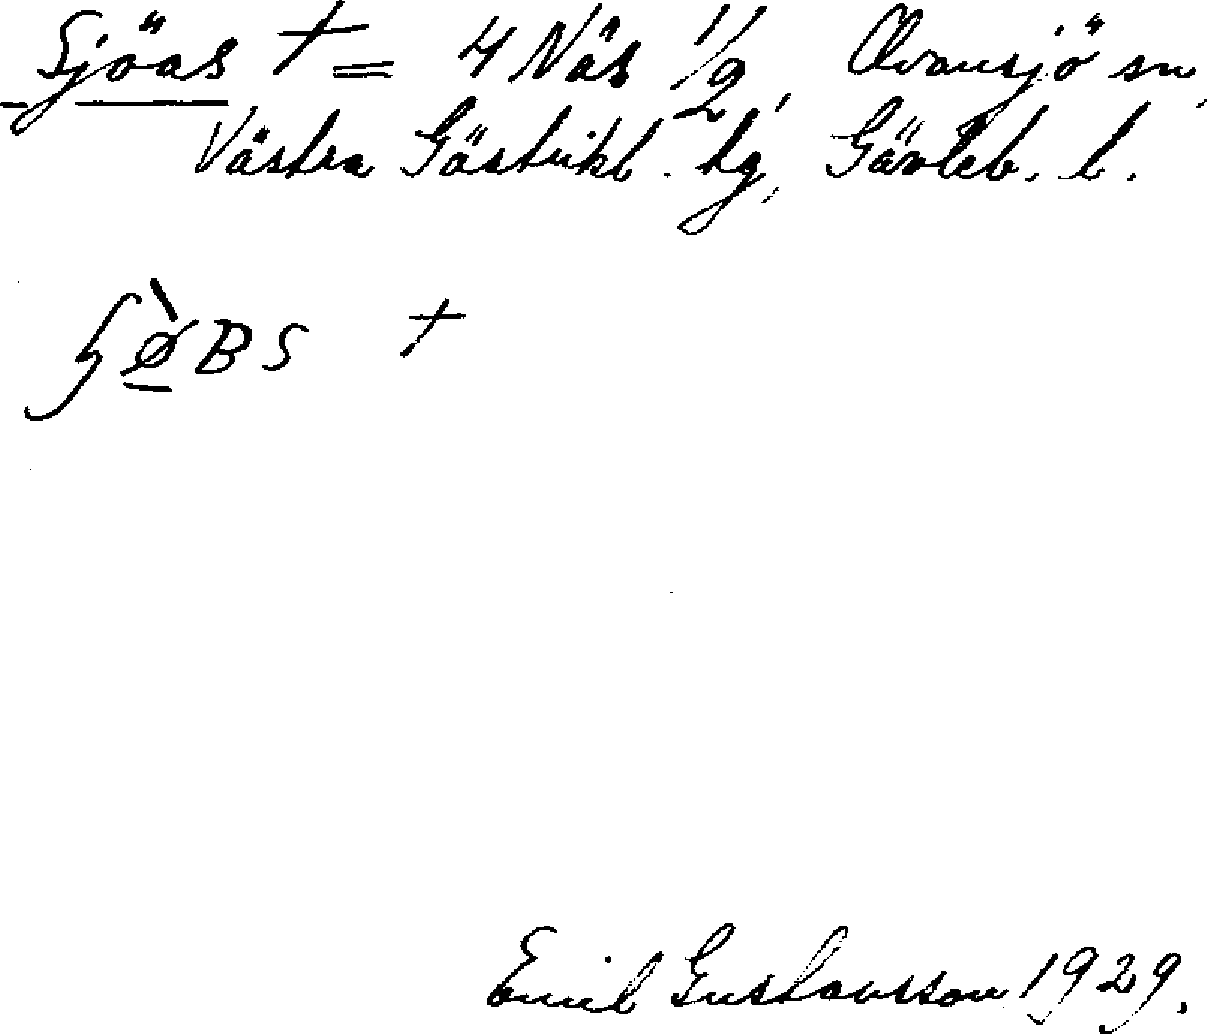 Sjöas † = 4 Näs 1/2, Ovansjö sn,
Västra Gästrikl. tg, Gävleb. l.
†
Emil Gustavsson 1929.